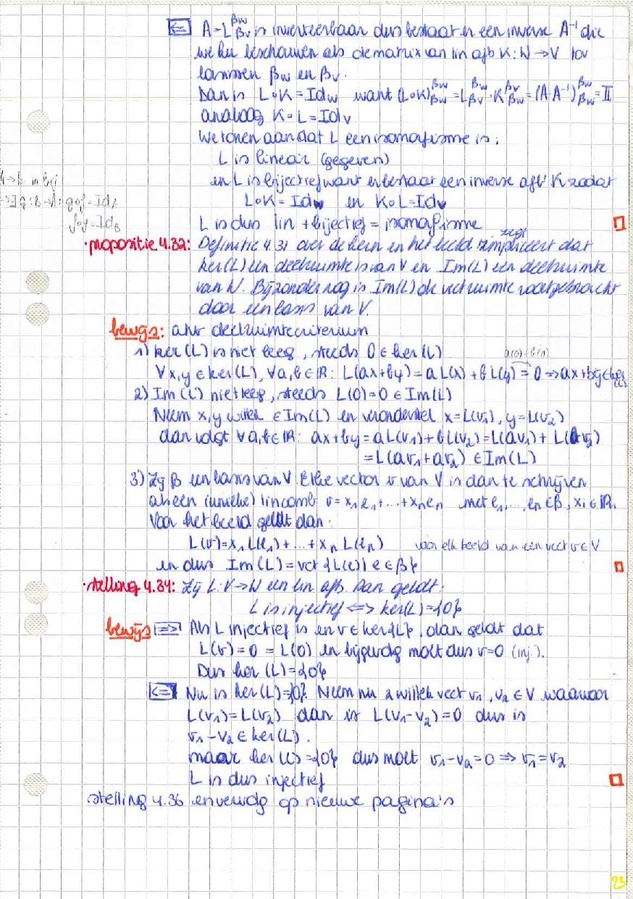 ⇐ A = L^βw_βv is inverteerbaar dus bestaat er een inverse A⁻¹ die
we hier beschouwen als de matrix van lin afb K: W → V tov
basissen βw en βv.
Dan is L∘K = Id_W want (L∘K)^βw_βw = L^βw_βv · K^βv_βw = (A·A⁻¹)^βw_βw = II
analoog K∘L = Id_V
We tonen aan dat L een isomorfisme is:
L is lineair (gegeven)
en L is bijectief want er bestaat een inverse afb K zodat
L∘K = Id_W en K∘L = Id_V
L is dus lin + bijectief = isomorfisme
• propositie 4.32: Definitie 4.31 over de kern en het beeld zegt dat
ker(L) een deelruimte is van V en Im(L) een deelruimte
van W. Bijzonder nog is Im(L) de vectruimte voortgebracht
door een basis van V.
bewijs: ahv deelruimtecriterium
1) ker(L) is niet leeg, steeds 0 ∈ ker(L)
a(0)+b(0)
∀x,y ∈ ker(L), ∀a,b ∈ ℝ: L(ax+by) = aL(x) + bL(y) = 0 ⇒ ax+by ∈ ker(L)
2) Im(L) niet leeg, steeds L(0)=0 ∈ Im(L)
Neem x,y willek ∈ Im(L) en veronderstel x=L(v₁), y=L(v₂)
dan volgt ∀a,b∈ℝ: ax+by = aL(v₁)+bL(v₂) = L(av₁) + L(bv₂)
= L(av₁+av₂) ∈ Im(L)
3) Zij β een basis van V. Elke vector v van V is dan te schrijven
als een (unieke) lincomb v = x₁e₁+...+xₙeₙ met e₁,...,eₙ ∈ β, xᵢ ∈ ℝ.
Voor het beeld geldt dan:
L(v) = x₁L(e₁) + ... + xₙL(eₙ) voor elk beeld van een vect v ∈ V
en dus Im(L) = vct{L(e)| e ∈ β}
• stelling 4.34: Zij L: V → W een lin afb. Dan geldt:
L is injectief ⟺ ker(L) = {0}
bewijs ⇒ Als L injectief is en v ∈ ker{L}, dan geldt dat
L(v) = 0 = L(0) en bijgevolg moet dus v=0 (inj.).
Dus ker(L) = {0}
⇐ Nu is ker(L)={0}. Neem nu 2 willek vect v₁, v₂ ∈ V waarvoor
L(v₁) = L(v₂) dan is L(v₁-v₂) = 0 dus is
v₁-v₂ ∈ ker(L).
maar ker(L) = {0} dus moet v₁-v₂=0 ⇒ v₁=v₂
L is dus injectief
stelling 4.36 en vervolg op nieuwe pagina's
23